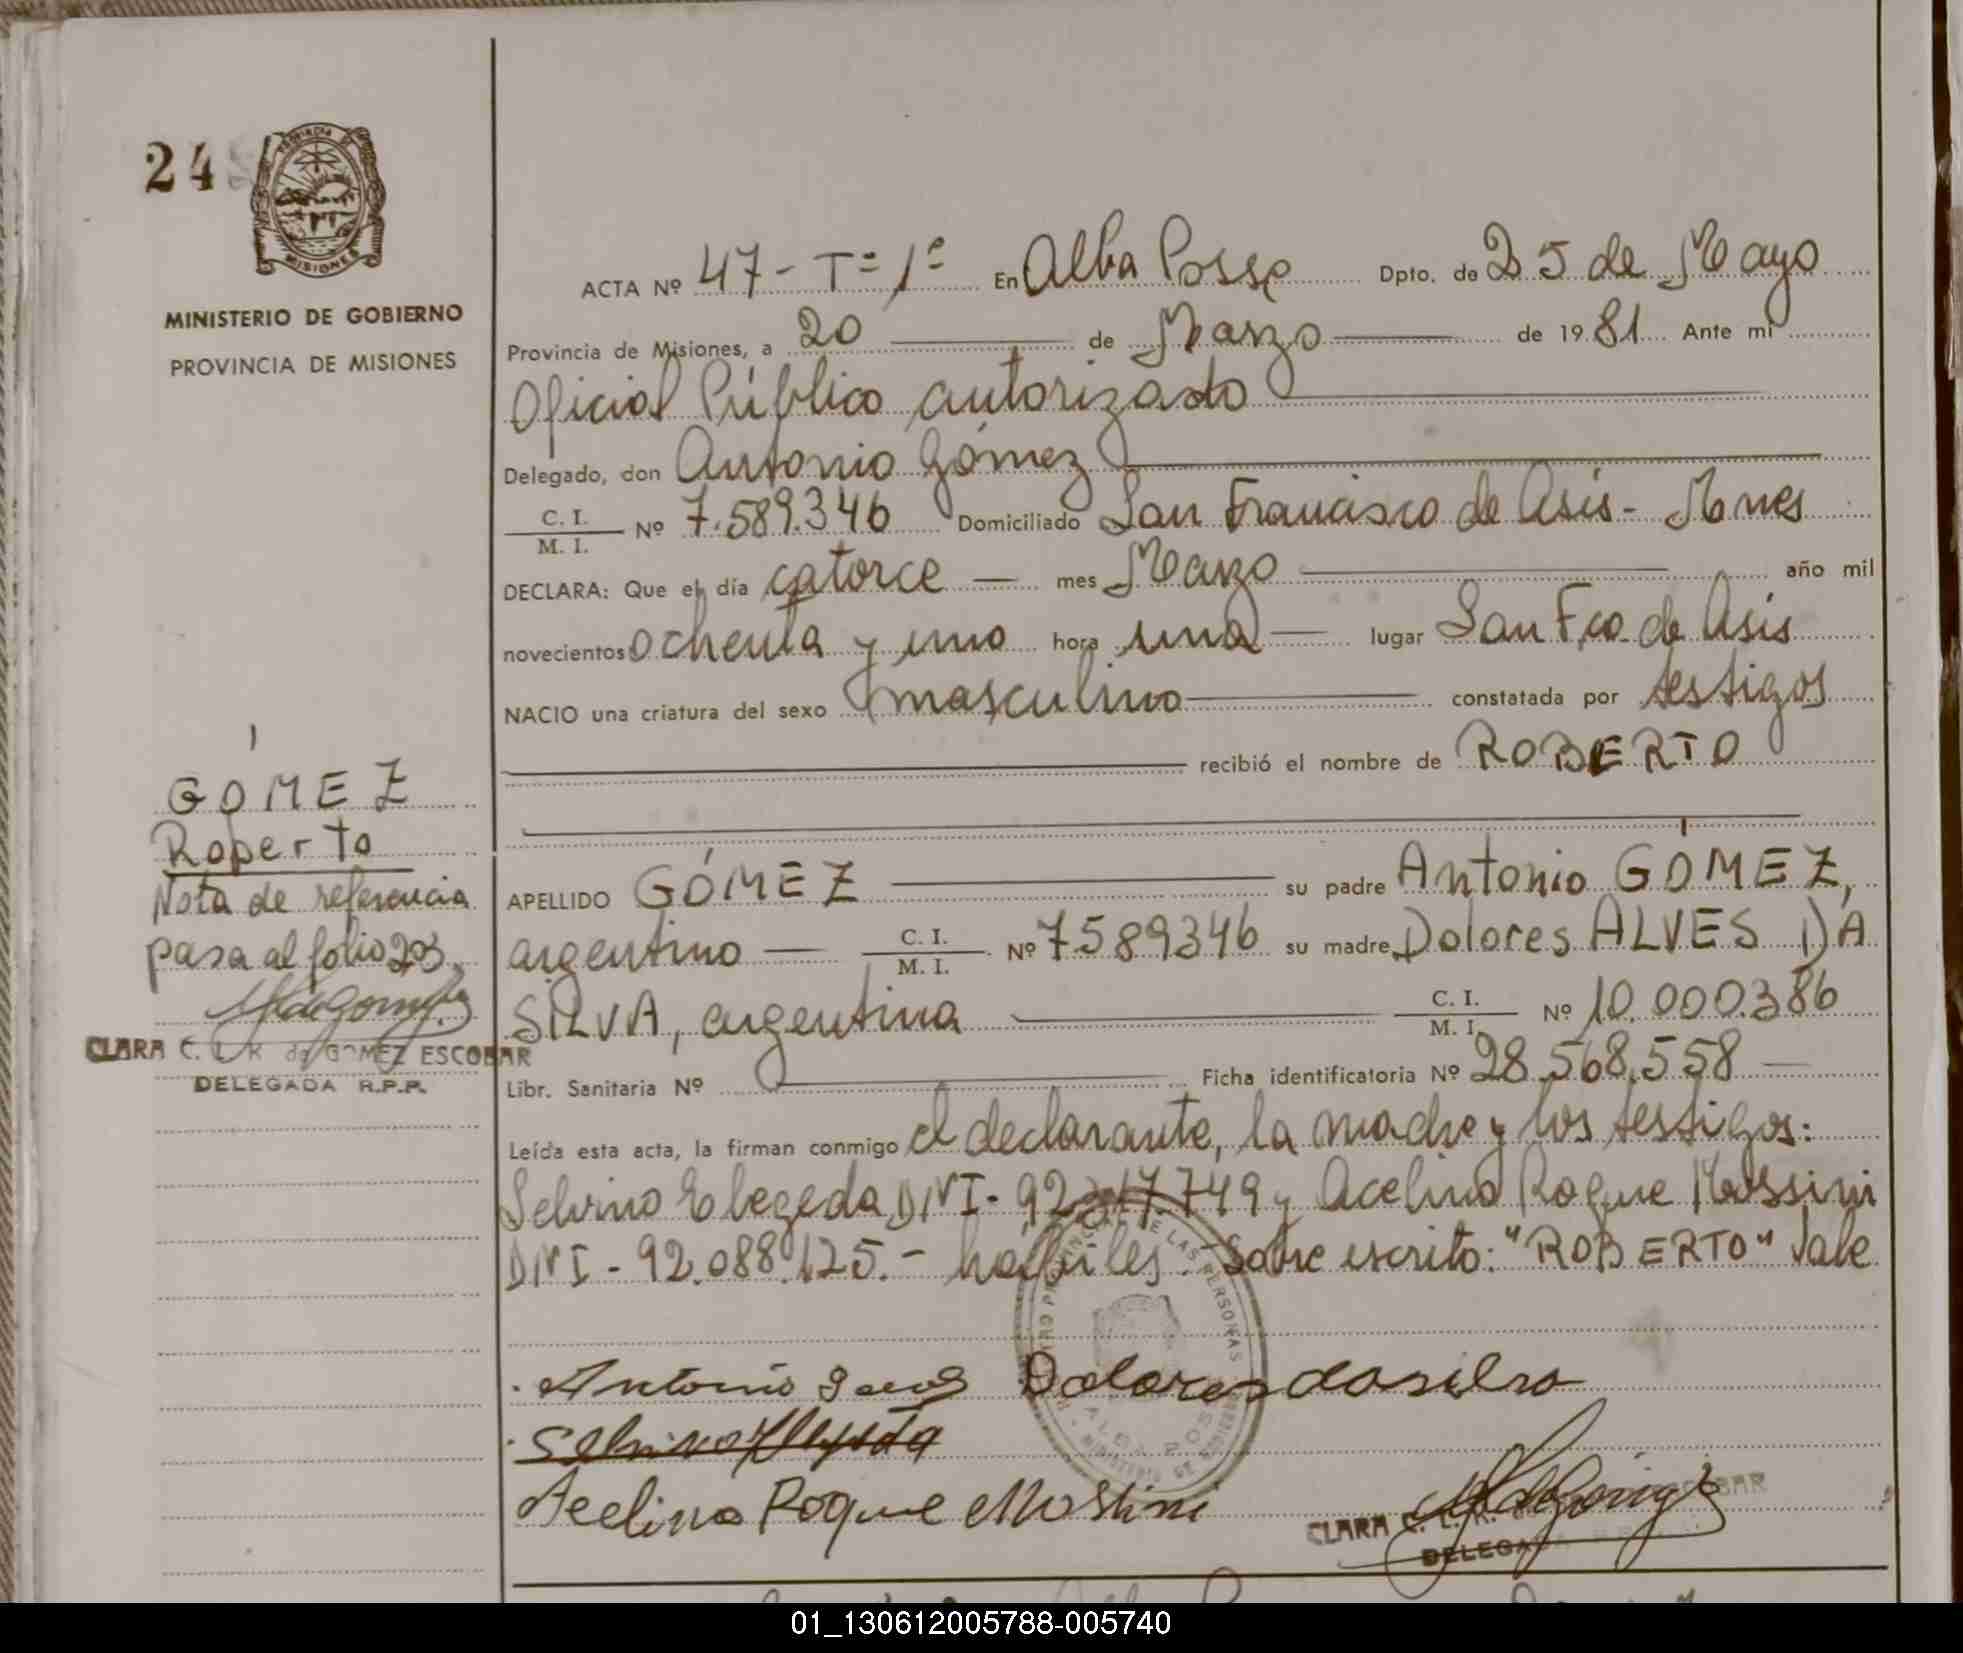 24
MINISTERIO DE GOBIERNO
PROVINCIA DE MISIONES
ACTA Nº 47 - Tº 1º En Alba Posse Dpto. de 25 de Mayo
Provincia de Misiones, a 20 de Marzo de 1981 Ante mí
Oficial Público autorizado
Delegado, don Antonio Gómez
C. I.
M. I. Nº 7.589.346 Domiciliado San Francisco de Asís - Mnes
DECLARA: Que el día catorce mes Marzo año mil
novecientos ochenta y uno hora una lugar San Fco de Asís
NACIO una criatura del sexo masculino constatada por testigos
recibió el nombre de ROBERTO
GÓMEZ
Roberto
Nota de referencia
pasa al folio 203
CLARA C. L. K. de GOMEZ ESCOBAR
DELEGADA R.P.P.
APELLIDO GÓMEZ su padre Antonio GOMEZ,
argentino C. I.
M. I. Nº 7589346 su madre Dolores ALVES DA
SILVA, argentina C. I.
M. I. Nº 10.000.386
Libr. Sanitaria Nº Ficha identificatoria Nº 28.568.558
Leída esta acta, la firman conmigo el declarante, la madre y los testigos:
Selvino DNI - 92 y Acelino Roque Mossini
DNI - 92.088.125. - hábiles. Sobre escrito: "ROBERTO" Vale
MISIONES
DE LAS PERSONAS
ALBA POSSE
Antonio Dolores da silva
Selvino
Acelino Roque Mossini
CLARA C. L. K.
DELEGADA
01_130612005788-005740